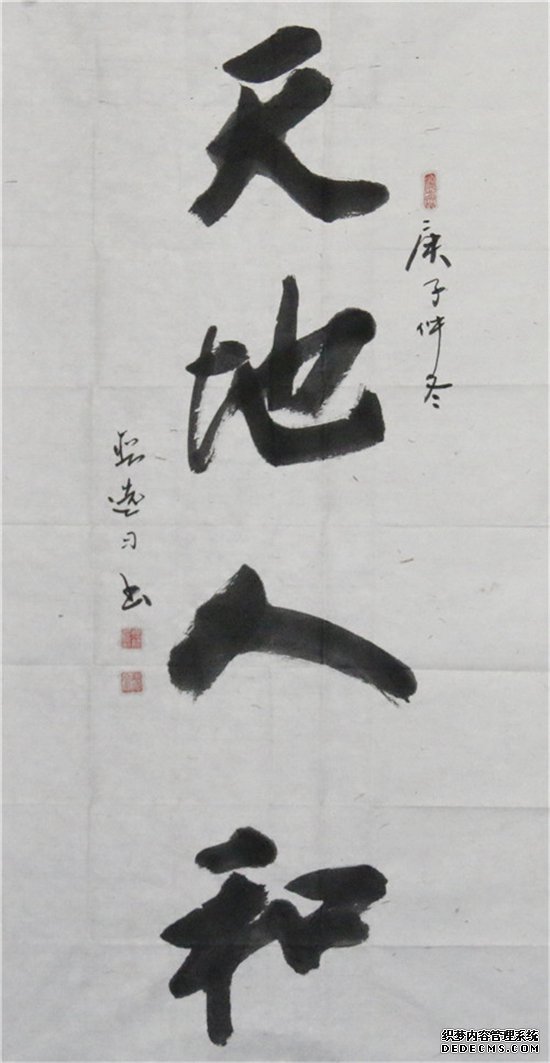 天地人和
庚子仲冬
习书
织梦内容管理系统
DEDECMS.COM